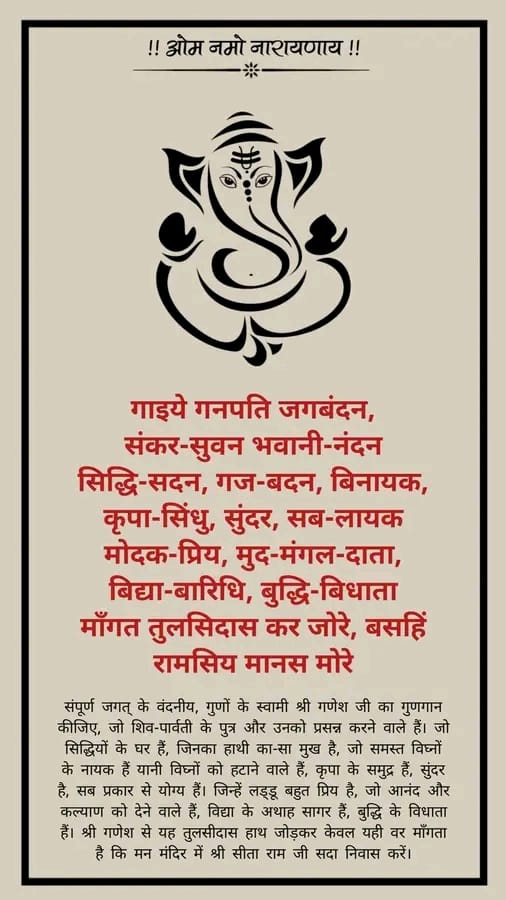 !! ओम नमो नारायणाय !!
गाइये गनपति जगबंदन,
संकर-सुवन भवानी-नंदन
सिद्धि-सदन, गज-बदन, बिनायक,
कृपा-सिंधु, सुंदर, सब-लायक
मोदक-प्रिय, मुद-मंगल-दाता,
बिद्या-बारिधि, बुद्धि-बिधाता
माँगत तुलसिदास कर जोरे, बसहिं
रामसिय मानस मोरे
संपूर्ण जगत् के वंदनीय, गुणों के स्वामी श्री गणेश जी का गुणगान
कीजिए, जो शिव-पार्वती के पुत्र और उनको प्रसन्न करने वाले हैं। जो
सिद्धियों के घर हैं, जिनका हाथी का-सा मुख है, जो समस्त विघ्नों
के नायक हैं यानी विघ्नों को हटाने वाले हैं, कृपा के समुद्र हैं, सुंदर
है, सब प्रकार से योग्य हैं। जिन्हें लड्डू बहुत प्रिय है, जो आनंद और
कल्याण को देने वाले हैं, विद्या के अथाह सागर हैं, बुद्धि के विधाता
हैं। श्री गणेश से यह तुलसीदास हाथ जोड़कर केवल यही वर माँगता
है कि मन मंदिर में श्री सीता राम जी सदा निवास करें।